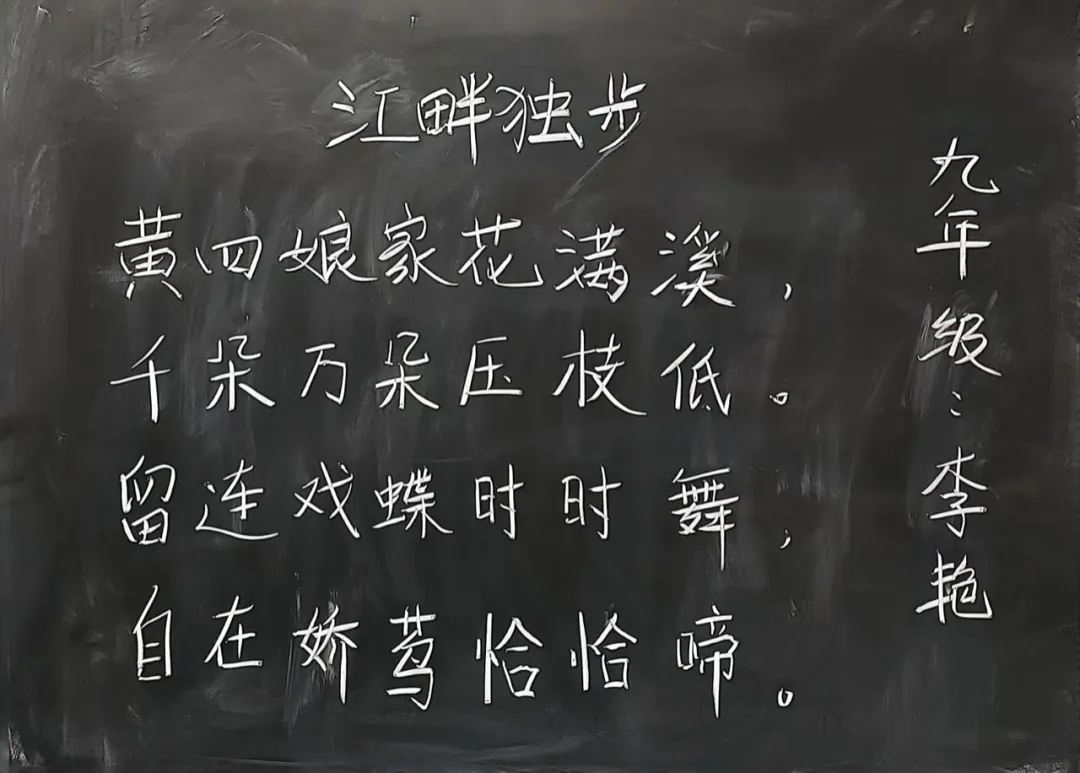 江畔独步
黄四娘家花满溪，
千朵万朵压枝低。
留连戏蝶时时舞，
自在娇莺恰恰啼。
九年级：李艳